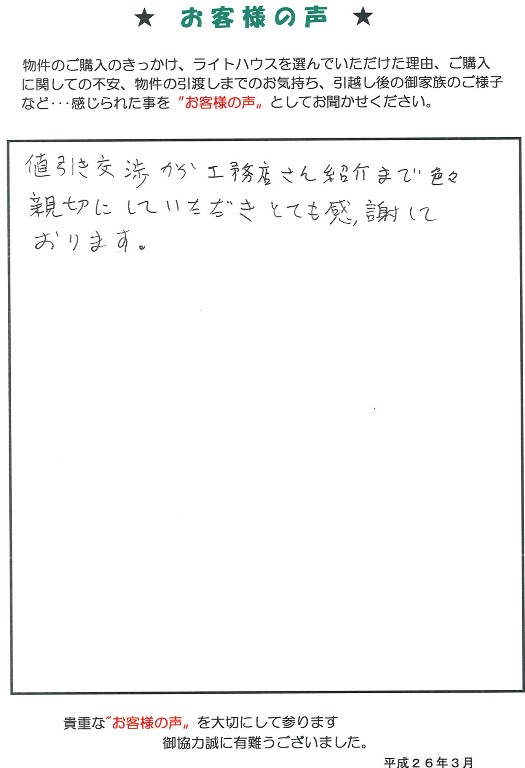 ★ お客様の声 ★
物件のご購入のきっかけ、ライトハウスを選んでいただけた理由、ご購入
に関しての不安、物件の引渡しまでのお気持ち、引越し後の御家族のご様子
など･･･感じられた事を〝お客様の声〟としてお聞かせください。
値引き交渉から工務店さん紹介まで色々
親切にしていただきとても感謝して
おります。
貴重な〝お客様の声〟を大切にして参ります
御協力誠に有難うございました。
平成２６年３月